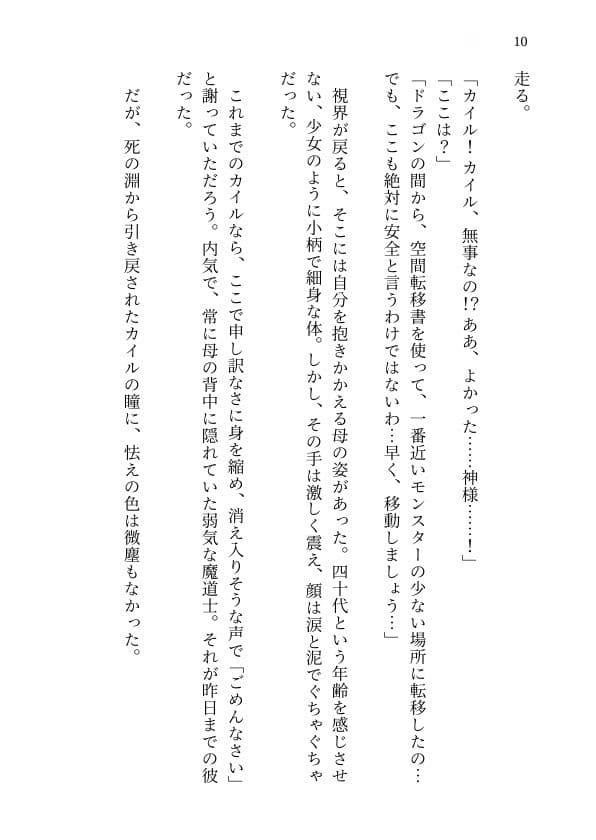 10
走る。
「カイル！カイル、無事なの!?ああ、よかった……神様……！」
「ここは？」
「ドラゴンの間から、空間転移書を使って、一番近いモンスターの少ない場所に転移したの…
でも、ここも絶対に安全と言うわけではないわ…早く、移動しましょう…」
視界が戻ると、そこには自分を抱きかかえる母の姿があった。四十代という年齢を感じさせ
ない、少女のように小柄で細身な体。しかし、その手は激しく震え、顔は涙と泥でぐちゃぐちゃ
だった。
これまでのカイルなら、ここで申し訳なさに身を縮め、消え入りそうな声で「ごめんなさい」
と謝っていただろう。内気で、常に母の背中に隠れていた弱気な魔道士。それが昨日までの彼
だった。
だが、死の淵から引き戻されたカイルの瞳に、怯えの色は微塵もなかった。